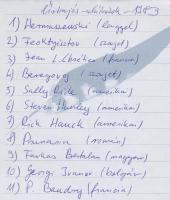 űrhajós - aláírások - 1983
1) Hermaszewski (lengyel)
2) Feoktyisztov (szovjet)
3) Jean L. Chrétien (francia)
4) Beregovoj (szovjet)
5) Sally Ride (amerikai)
6) Steven Hawley (amerikai)
7) Rick Hauck (amerikai)
8) Prunariu (román)
9) Farkas Bertalan (magyar)
10) Georgi Ivanov (bolgár)
11) P. Baudry (francia)